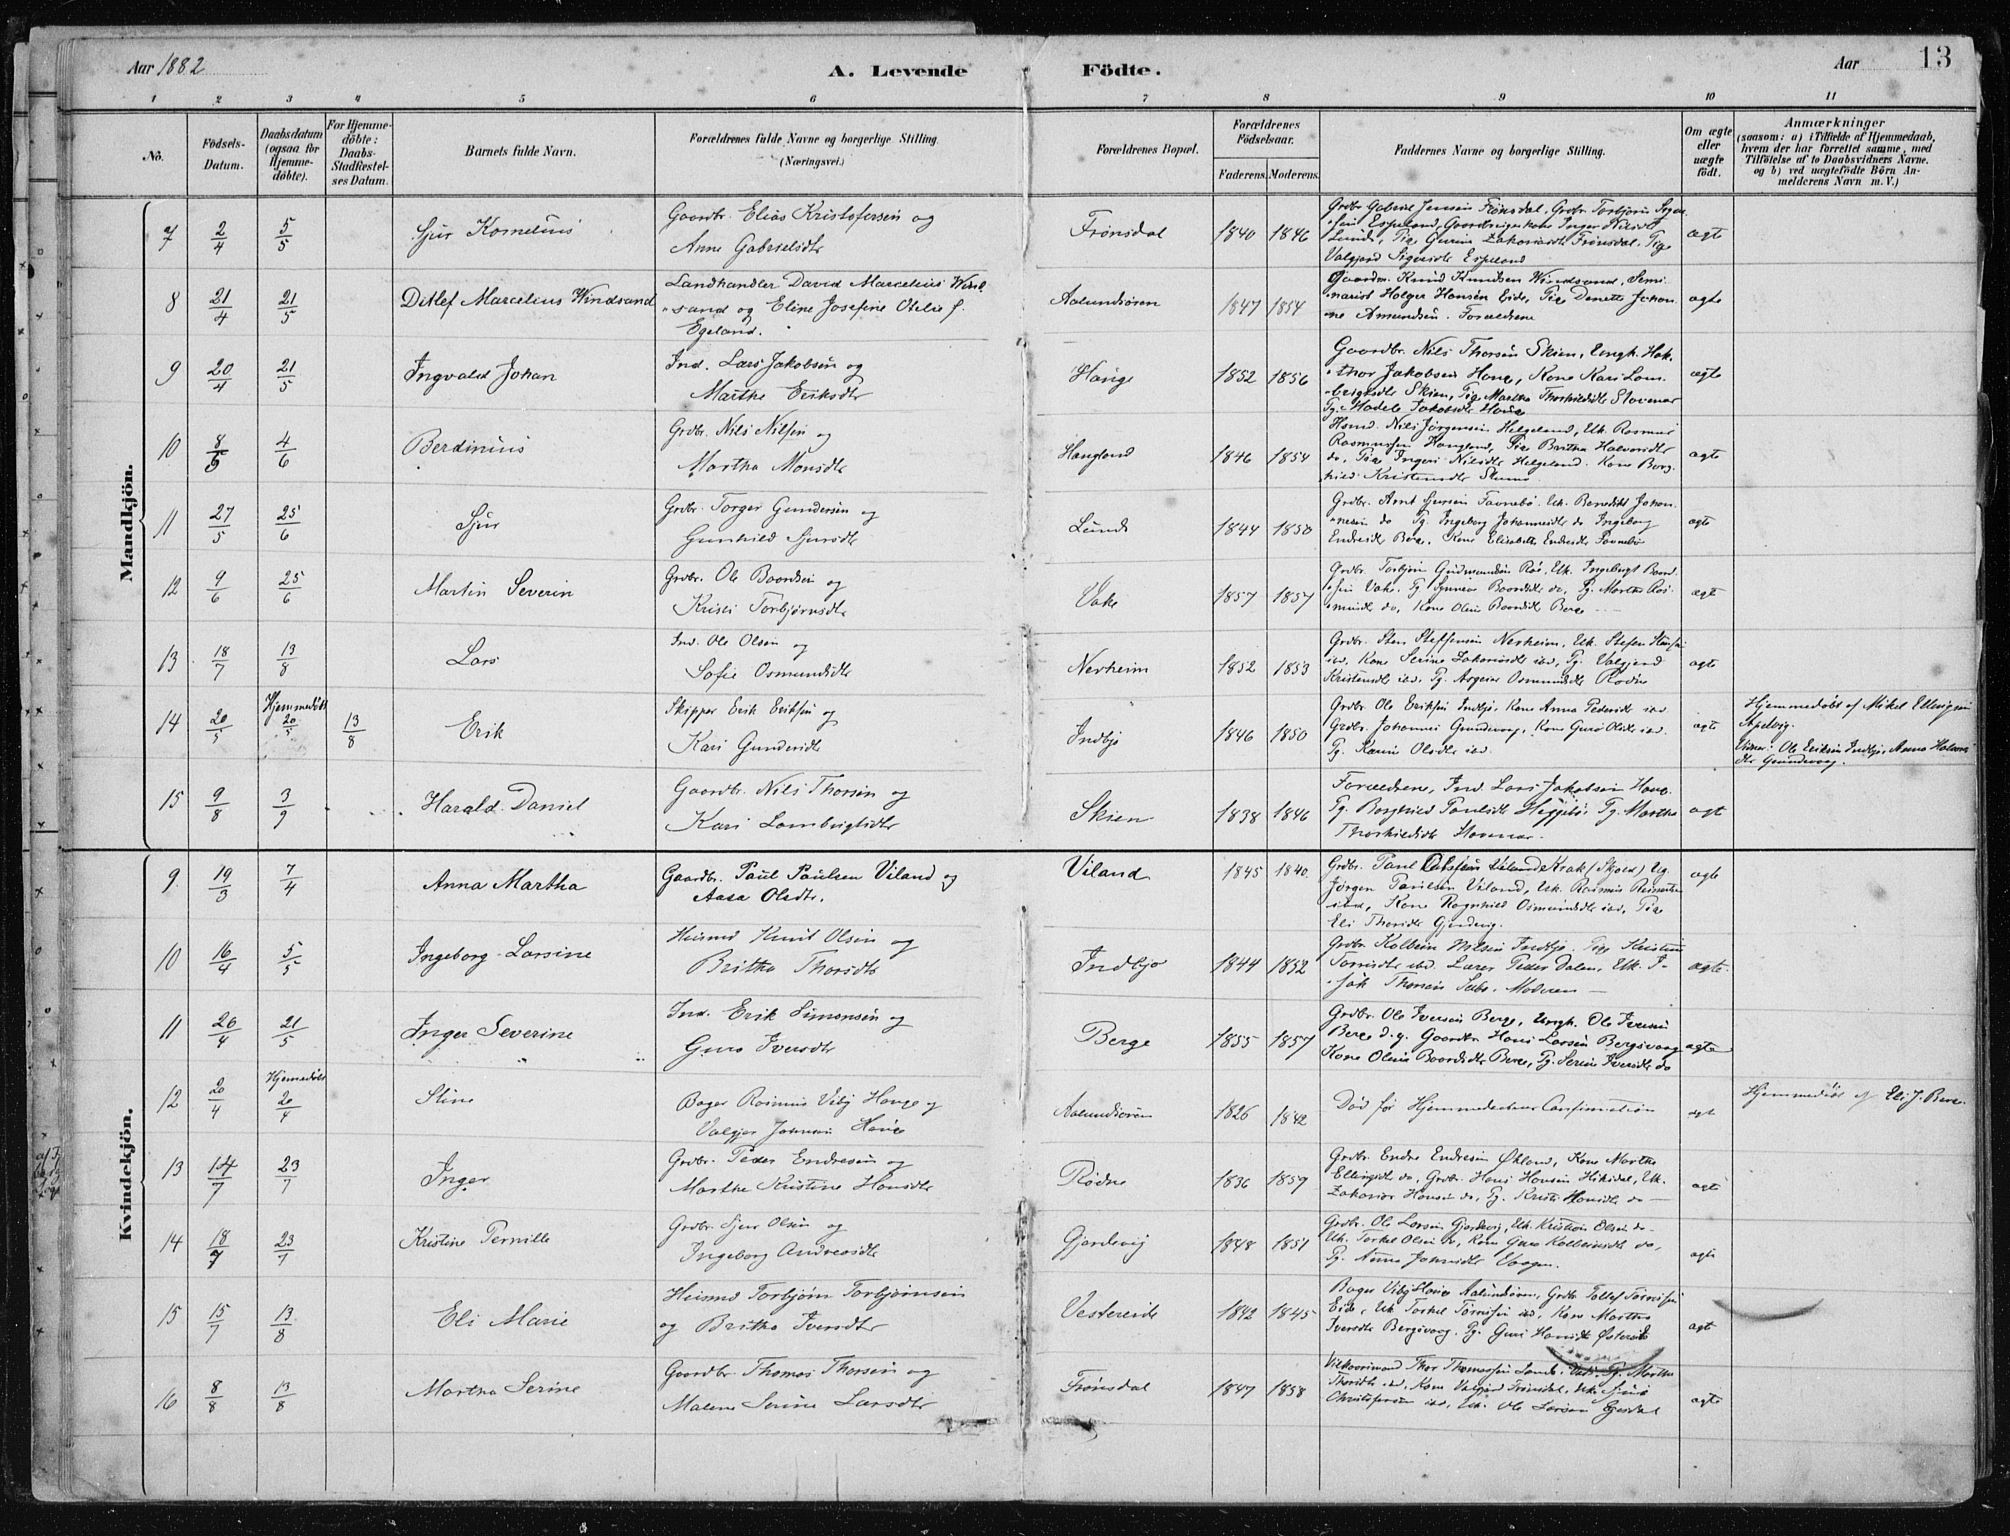 Aar 1882
A. Levende Födte.
Aar
13
1 2 3 4 5 6 7 8 9 10 11
No.
Födsels-Datum.
Daabsdatum (ogsaa for Hjemme-döbte).
For Hjemme-döbte: Daabs-Stadfæstel-ses Datum.
Barnets fulde Navn.
Forældrenes fulde Navne og borgerlige Stilling (Næringsvei.)
Forældrenes Bopæl.
Forældrenes Födselsaar.
Faderens. Moderens.
Faddernes Navne og borgerlige Stilling.
Om ægte eller uægte födt.
Anmærkninger
(saasom: a) i Tilfælde af Hjemmedaab, hvem der har forrettet samme, med Tilföielse af to Daabsvidners Navne, og b) ved uægtefödte Börn An-melderens Navn m. V.)
Mandkjön.
7 2/4 5/5 Sjur Kornelius Gaardbr. Elias Kristofersen og Anne Gabrielsdtr Frønsdal 1840 1846 Grdbr Gabriel Jensen Frønsdal, Grdbr Torbjørn Espeland, Inger Nilsdtr Lunde, Pige Zakariasdtr Frønsdal, Pige Valgjerd Espeland ægte
8 21/4 21/5 Ditlef Marcelius Windsand Landhandler David Marcelius Wind-sand og Eline Josefine Otelie f. Egeland. Aalundøren 1847 1854 Gaardm. Knud Knudsen Windsand, Semi-narist Holger Hansen Eide, Pige Danette Johan-ne Amundsen. Forældrene ægte
9 20/4 21/5 Ingvald Johan Ind. Lars Jakobsen og Marthe Eriksdtr Hauge 1852 1856 Gaardbr. Nils Thorsen Skien, Ungk. Hak-thor Jakobsen Hauge, Kone Kari Lam-brigtsdtr Skien, Pige Martha Thorkildsdtr Jakobsdtr Hauge ægte
10 8/5 4/6 Berdinius Grdbr. Nils Nilsen og Martha Monsdtr Haugland 1846 1854 Husmd Nils Jørgensen Helgeland, Uk. Rasmus Rasmussen Haugland, Pige Britha Halvorsdtr do, Pige Ingeri Nilsdtr Helgeland. Kone Borg-hild Kristensdtr ægte
11 27/5 25/6 Sjur Grdbr. Torger Gundersen og Gunhild Sjursdtr Lunde 1844 1850 Grdbr. Arnt Sjursen Uk. Benedikt Johan-nesen do Pg. Ingeborg Johannesdtr do Ingeborg Endresdtr Berge, Kone Elisabeth Endresdtr ægte
12 9/6 25/6 Martin Severin Grdbr. Ole Baardsen og Kristi Torbjørnsdtr Vake 1857 1857 Grdbr Torbjørn Gudmundsen Uk. Ingebrigt Baard-sen Vake, Pg Baardsdtr do, Pg. Martha do, Kone Olene Baardsdtr Berge ægt
13 18/7 13/8 Lars Ind. Ole Olsen og Sofie Osmundsdtr Nerheim 1852 1853 Grdbr. Sten Steffensen Nerheim, Uk Stefen ibd, Kone Serine Zakariasdtr ibd, Pg. Valgjerd Kristensdtr ibd, Pg. Osmundsdtr Rødne ægte
14 20/5 Hjemmedøbt 20/5 13/8 Erik Skipper Erik Eriksen og Kari Gundersdtr Indbjo 1846 1850 Grdbr. Ole Eriksen Indbjo, Kone Anna Pedersdtr ibd Grdbr. Johannes Gundevaag, Kone Guro Olsdtr ibd. Pg. Karen Olsdtr ibd. ægte Hjemmedøbt af Mikel Ellingsen Apelvig. Vidner: Ole Eriksen Indbjo, Anna Halvors-dtr Gundevaag.
15 9/8 3/9 Harald Daniel Gaardbr. Nils Thorsen og Kari Lambrigtsdtr Skien 1838 1846 Forældrene, Ind. Lars Jakobsen Hauge. Pg. Borghild Paulsdtr Pg. Martha Thorkildsdtr ægt
Kvindekjön.
9 19/3 7/4 Anna Martha Gaardbr. Paul Paulsen Viland og Aasa Olsdtr. Viland 1845 1840 Grdbr. Paul Viland Krak (Skjold) Ug Jørgen Paulsen Viland, Uk. Rasmus ibd, Kone Ragnhild Osmundsdtr ibd, Pige Eli Thorsdtr Gjerdevig. ægte
10 16/4 5/5 Ingeborg Larsine Husmd Knut Olsen og Britha Thorsdtr Indbjo 1844 1852 Grdbr Kolbein Nilsen Indbjo. Pige Kristine ibd. Lærer Peder Dalen, Uk. I-sak Thorsen Sæbø. Moderen ægte
11 26/4 21/5 Inger Severine Ind. Erik Simonsen og Guro Iversdtr Berge 1855 1857 Grdbr. Ole Iversen Berge, Ungk. Ole Iversen Berge d.y. Gaardbr Hans Larsen Bergsvaag Kone Olene Baardsdtr Berge, Pg. Serine Iversdtr do ægte
12 20/4 Hjemmedøbt 20/4 Stine Bager Rasmus Viby Hauge og Valgjer Johanne Hauge Aalundøren 1826 1842 Død før Hjemmedaabens Confirmation ægt Hjemmedøbt af Eli J. Berge.
13 14/7 23/7 Inger Grdbr. Peder Endresen og Marthe Kristine Hansdtr Rødne 1836 1859 Grdbr Endre Endresen Økland, Kone Martha Ellingsdtr do, Grdbr. Hans Hansen Uk. Zakarias Hansen do, Pg. Kristi Hansdtr do ægt
14 18/7 23/7 Kristine Pernille Grdbr. Sjur Olsen og Ingeborg Andreasdtr Gjerdevig 1848 1851 Grdbr. Ole Larsen Gjerdevig, Uk Kristian Olsen do. Uk. Torkel Olsen do, Kone Guro Kolbeinsdtr do, Pg. Anna Vaagen. ægt
15 15/7 13/8 Eli Marie Husmd Torbjørn Torbjørnsen og Britha Iversdtr Vestereide 1842 1845 Bager Viby Hauge Aalundøren, Grdbr Tollef Tørrisen Eide, Uk Torkel Tørrisen ibd, Kone Martha Iversdtr Bergsvaag, Pg. Guri Hansdtr Østereide ægt
16 8/8 13/8 Martha Serine Gaardbr. Thomas Thorsen og Malene Serine Larsdtr Frønsdal 1847 1858 Thor Thomassen Lunde, Pg. Martha Thorsdtr ibd, Kone Valgjerd Frønsdal, Uk. Christofersen ibd, Uk. Ole Larsen ægte